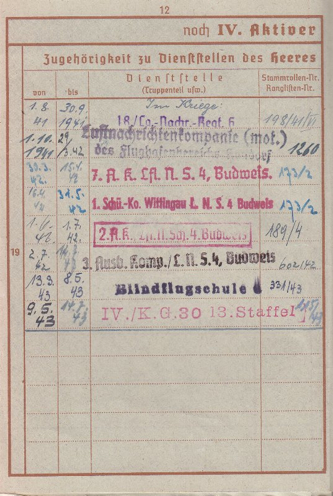 12
noch IV. Aktiver
Zugehörigkeit zu Dienststellen des Heeres
von bis Dienststelle (Truppenteil usw.) Stammrollen-Nr. Ranglisten-Nr.
Im Kriege:
1.8. 41 30.9. 1941 18./Lg.-Nachr.-Regt. 6 198/41/VI
1.10. 1941 Luftnachrichtenkompanie (mot.)
3.42 des Flughafenbereichs 1260
42 7. A. K. LN. S. 4, Budweis. 173/2
42 31.5. 42 1. Schü.-Ko. Wittingau L. N. S. 4 Budweis 173/2
1.6. 42 1.7. 42. 2. A. K. LN. Sch. 4. Budweis 189/4
2.7. 42 43 3. Ausb. Komp./L. N. S. 4, Budweis 602/42
13.3. 43 8.5. 43 Blindflugschule 331/43
9.5. 43 14.7. 43 IV./K.G.30 13. Staffel
19